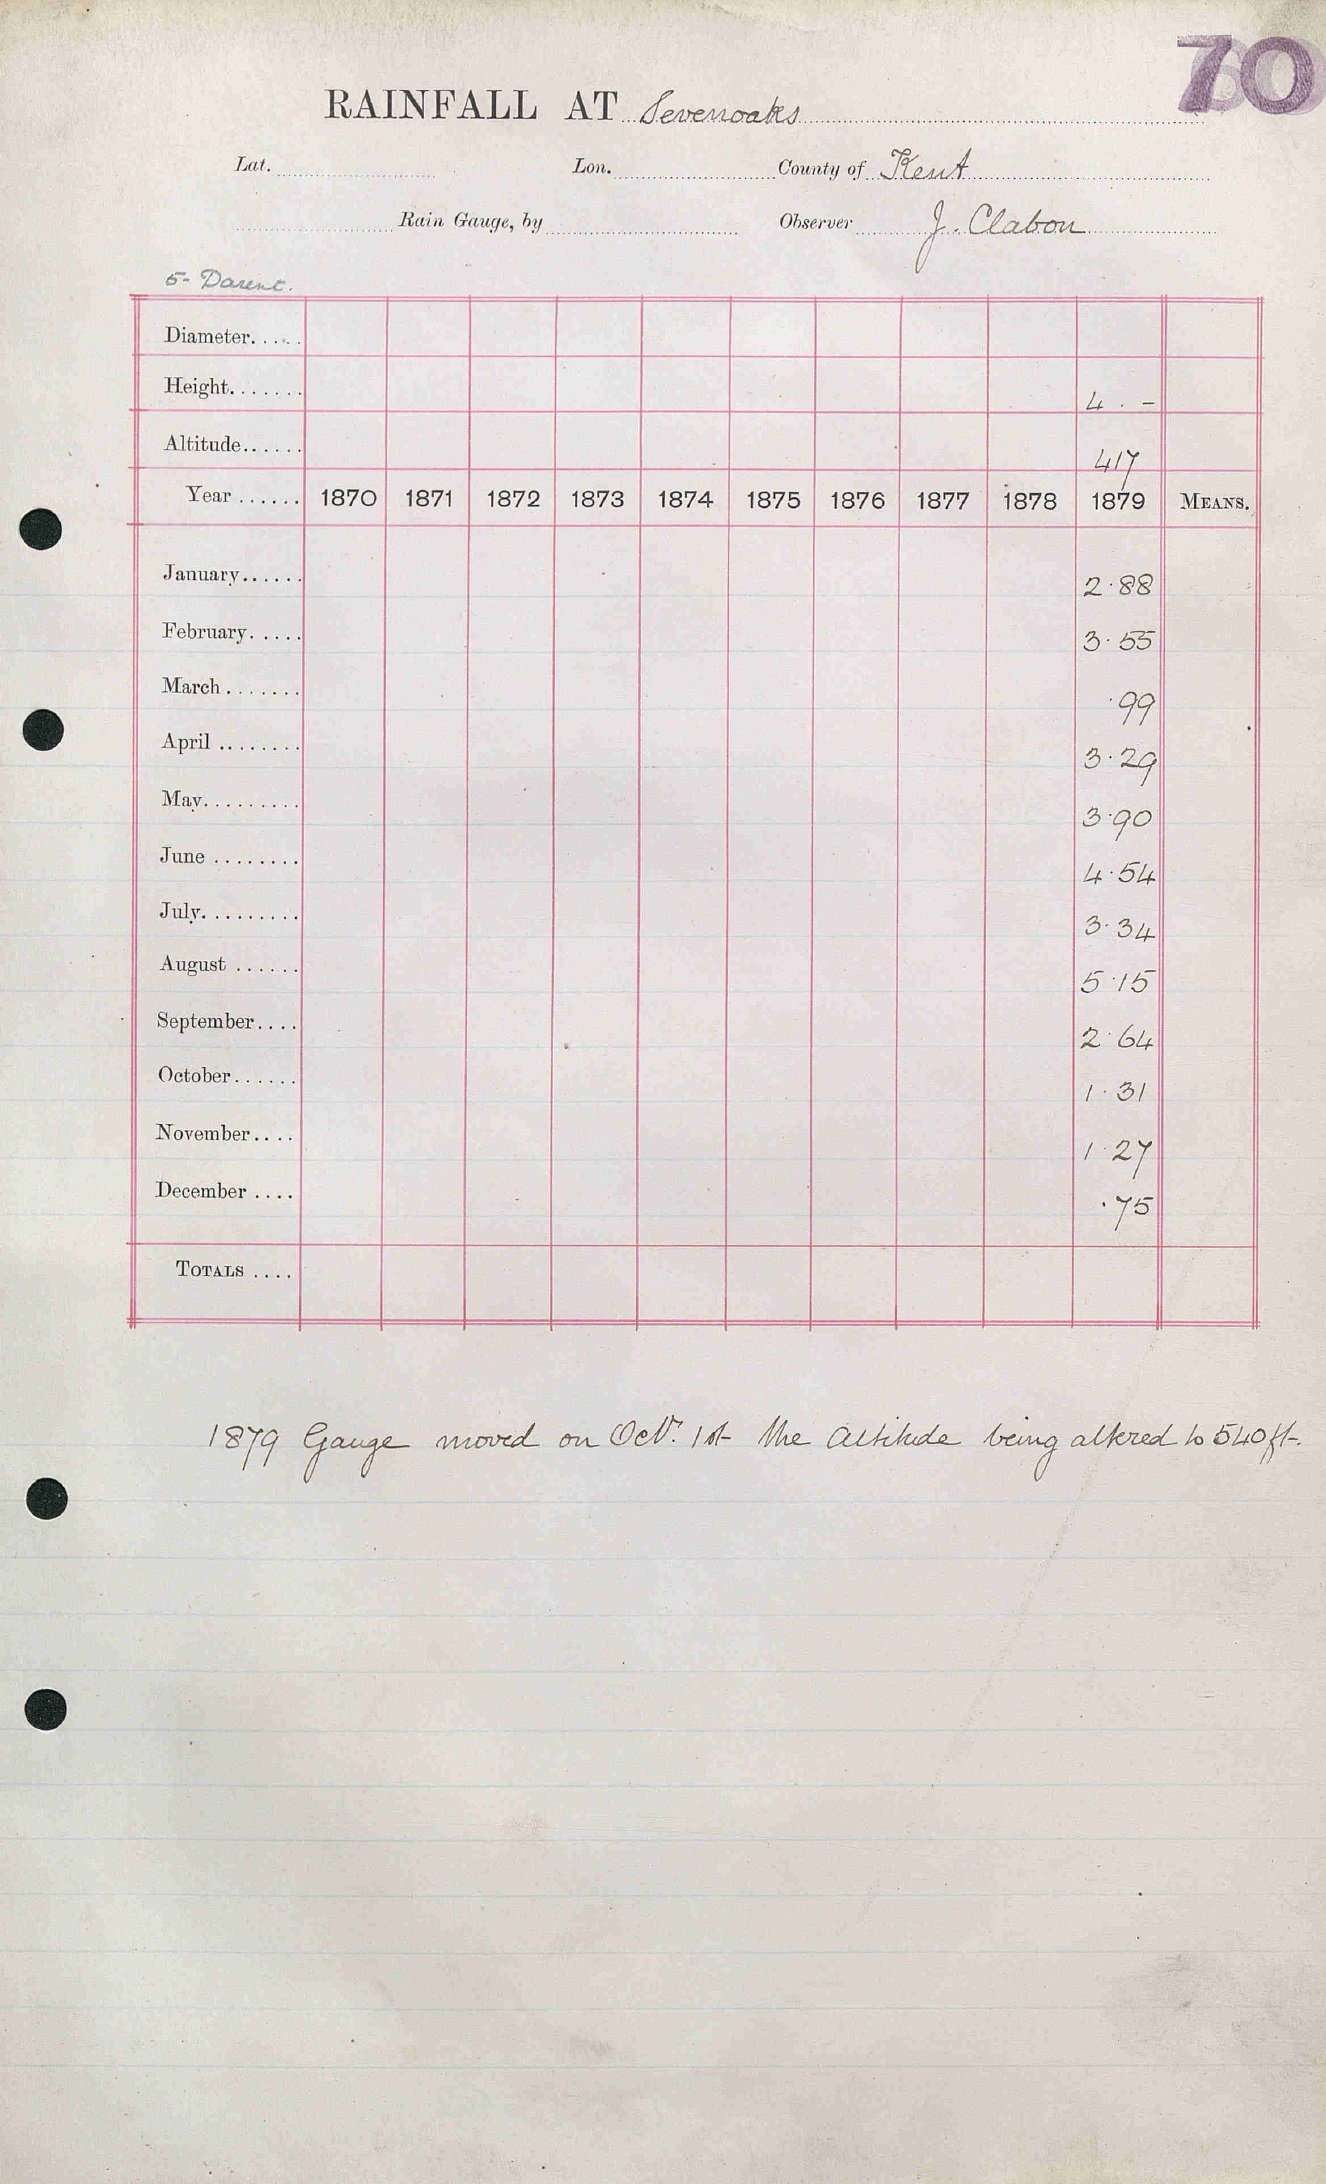 70
RAINFALL AT Sevenoaks
Lat. Lon. County of Kent
Rain Gauge, by Observer J. Clabon
5- Darent.
Diameter......
Height....... 4 . -
Altitude...... 417
Year ...... 1870 1871 1872 1873 1874 1875 1876 1877 1878 1879 MEANS.
January...... 2.88
February..... 3.55
March ....... .99
April ........ 3.29
May......... 3.90
June ........ 4.54
July......... 3.34
August ...... 5.15
September.... 2.64
October...... 1.31
November.... 1.27
December .... .75
TOTALS ....
1879 Gauge moved on Oct. 1st the altitude being altered to 540ft.